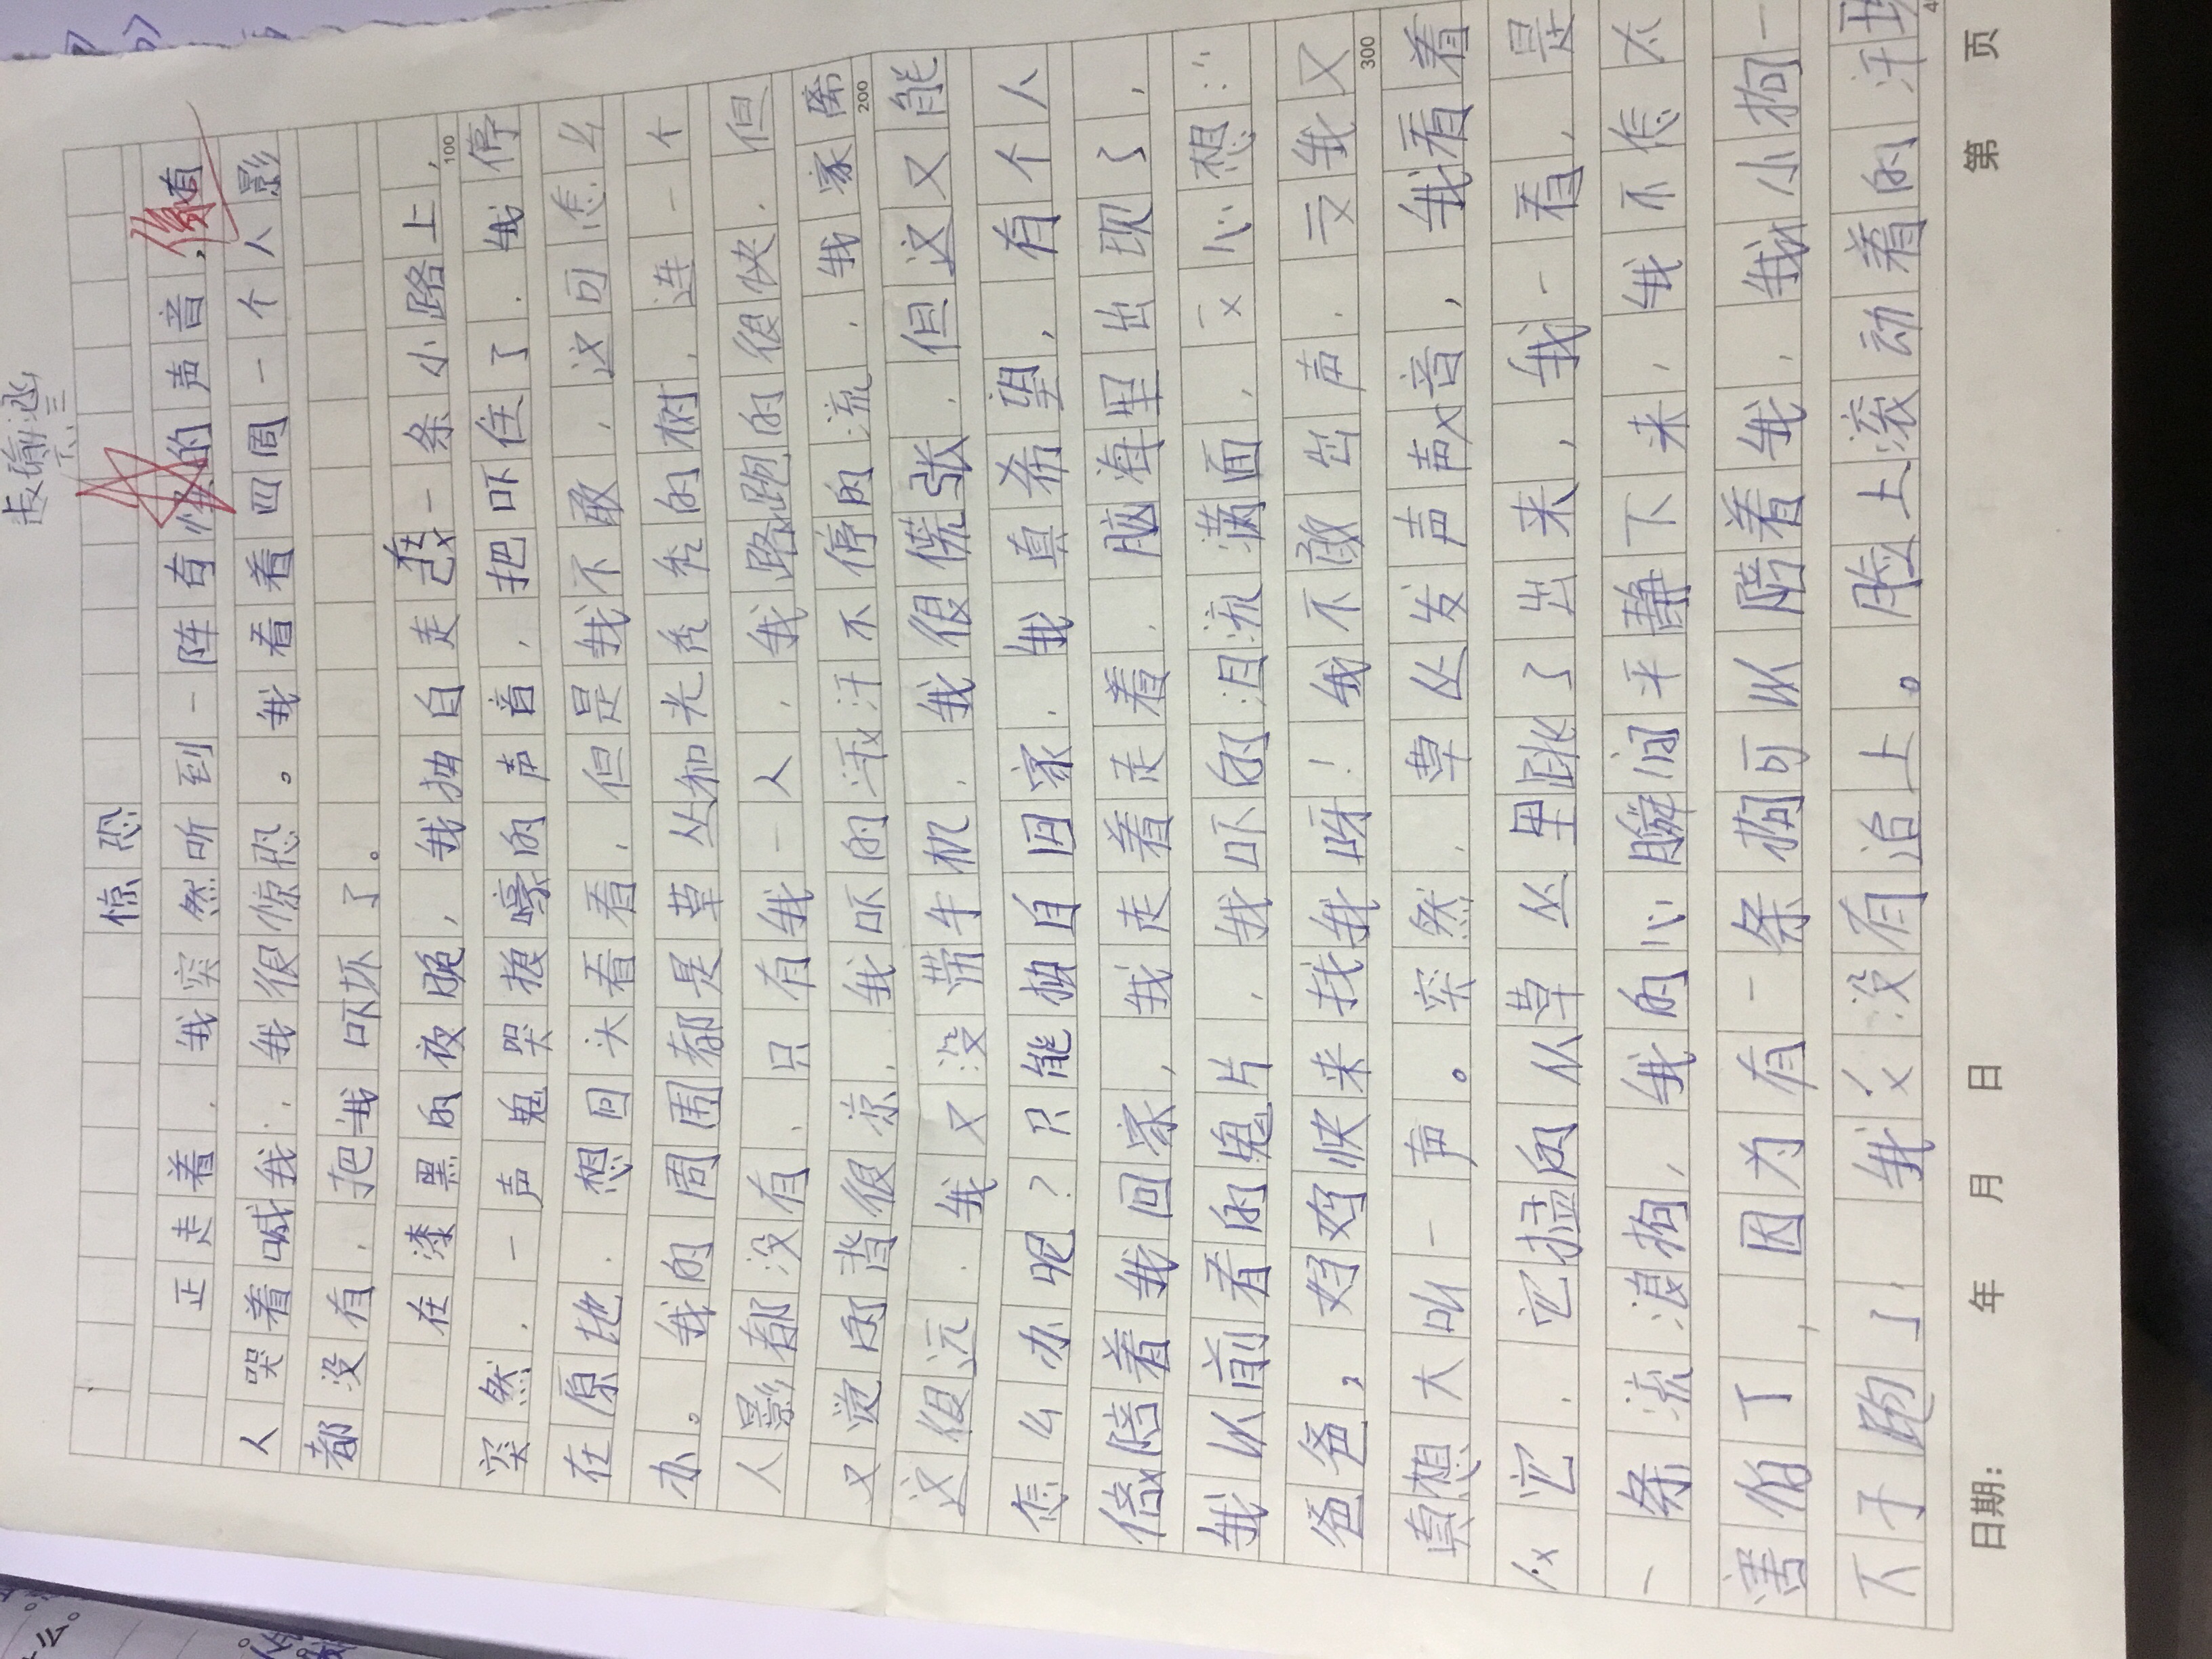 惊恐
正走着，我突然听到一阵奇怪的声音，像有
人哭着喊我，我很惊恐。我看着四周一个人影
都没有，把我吓坏了。
在漆黑的夜晚，我独自走在一条小路上，
突然，一声鬼哭狼嚎的声音，把吓住了，我停
在原地，想回头看看，但是我不敢，这可怎么
办。我的周围都是草丛和光秃秃的树，连一个
人影都没有，只有我一人，我跑的很快，但
又觉的背很凉，我吓的汗不停的流，我家离
这很远，我又没带手机，我很慌张，但这又能
怎么办呢？只能独自回家，我真希望，有个人
陪着我回家，我走着走着，脑海里出现了，
我以前看的鬼片，我吓的泪流满面，心想：“
爸爸，妈妈快来找我呀！我不敢出声，我又
真想大叫一声。突然，草丛发声声音，我看着
它，它猛的从草丛里跳了出来，我一看，是
一条流浪狗，我的心瞬间平静下来，我不怎太
害怕了，因为有一条狗可以陪着我，我小狗一
下子跑了，我没有追上。脸上滚动着的汗珠
日期： 年 月 日 第 页
100
200
300